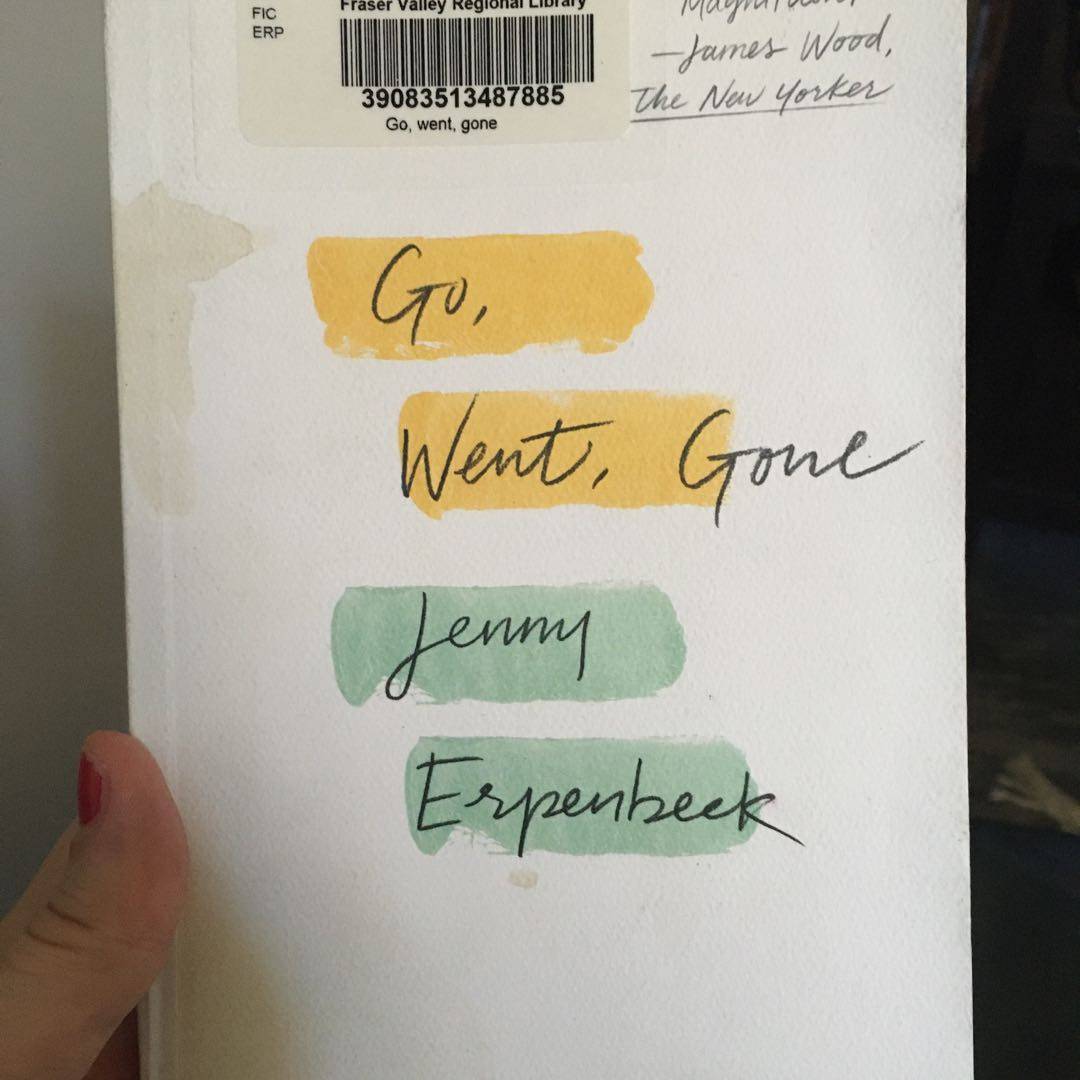 Fraser Valley Regional Library
FIC
ERP
39083513487885
Go, went, gone
—James Wood,
The New Yorker
Go,
Went, Gone
Jenny
Erpenbeck